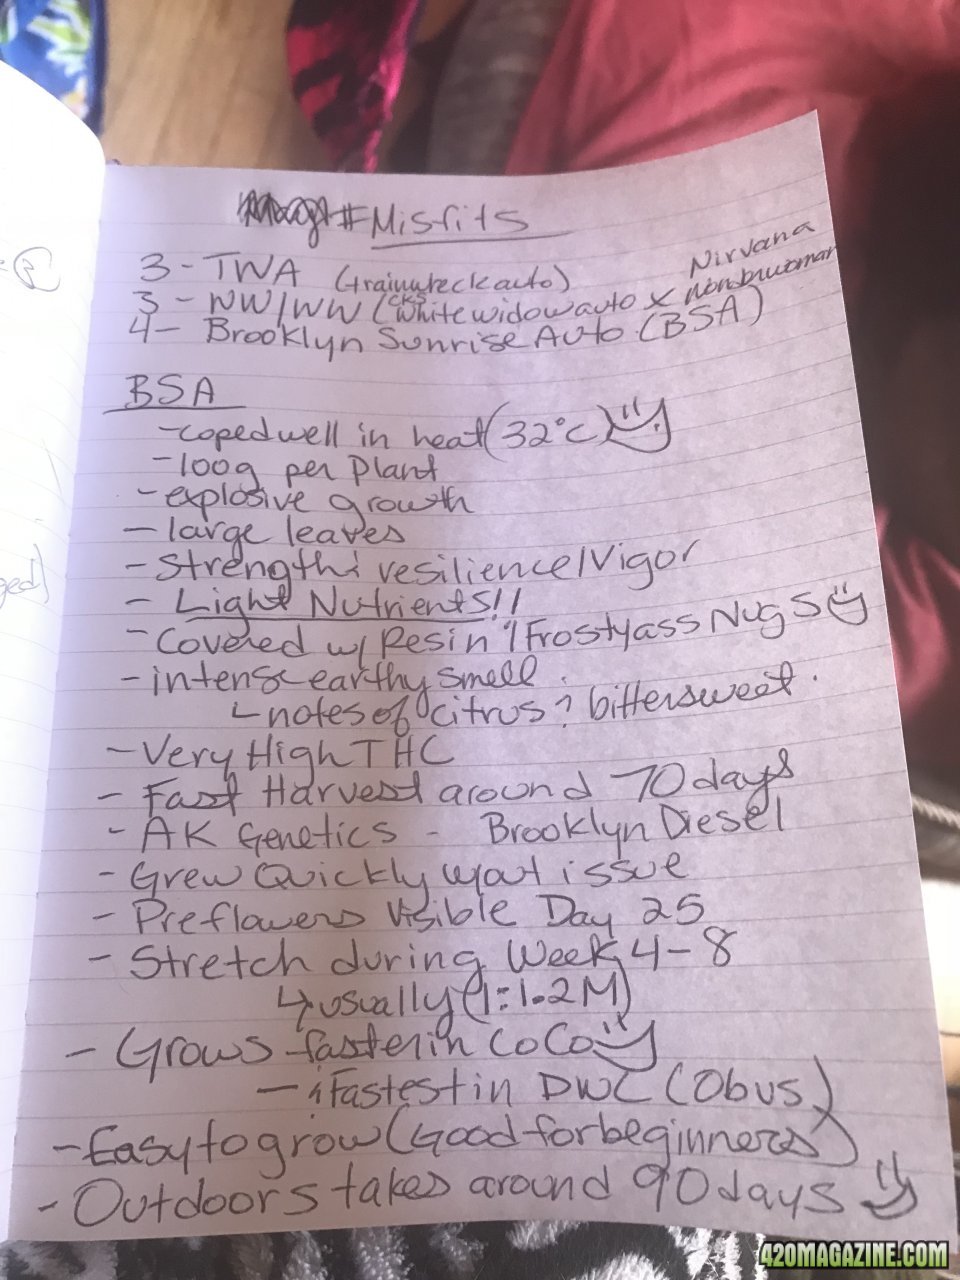 #Misfits
3 - TWA (trainwreckauto)
Nirvana
3 - NW/WW (CKS whitewidowauto x
4 - Brooklyn Sunrise Auto (BSA)
BSA
- coped well in heat (32°C)
- 100g per Plant
- explosive growth
- large leaves
- Strength & resilience/Vigor
- Light Nutrients!!
- Covered w/ Resin & Frostyass Nugs
- intense earthy smell.
notes of citrus & bittersweet.
- Very High THC
- Fast Harvest around 70 days
- AK Genetics - Brooklyn Diesel
- Grew Quickly w/out issue
- Preflowers Visible Day 25
- Stretch during Week 4-8
↳ usually (1:1.2M)
- Grows faster in CoCo
- & Fastest in DWC (Obvs)
- Easy to grow (Good for beginners)
- Outdoors takes around 90 days
420MAGAZINE.COM